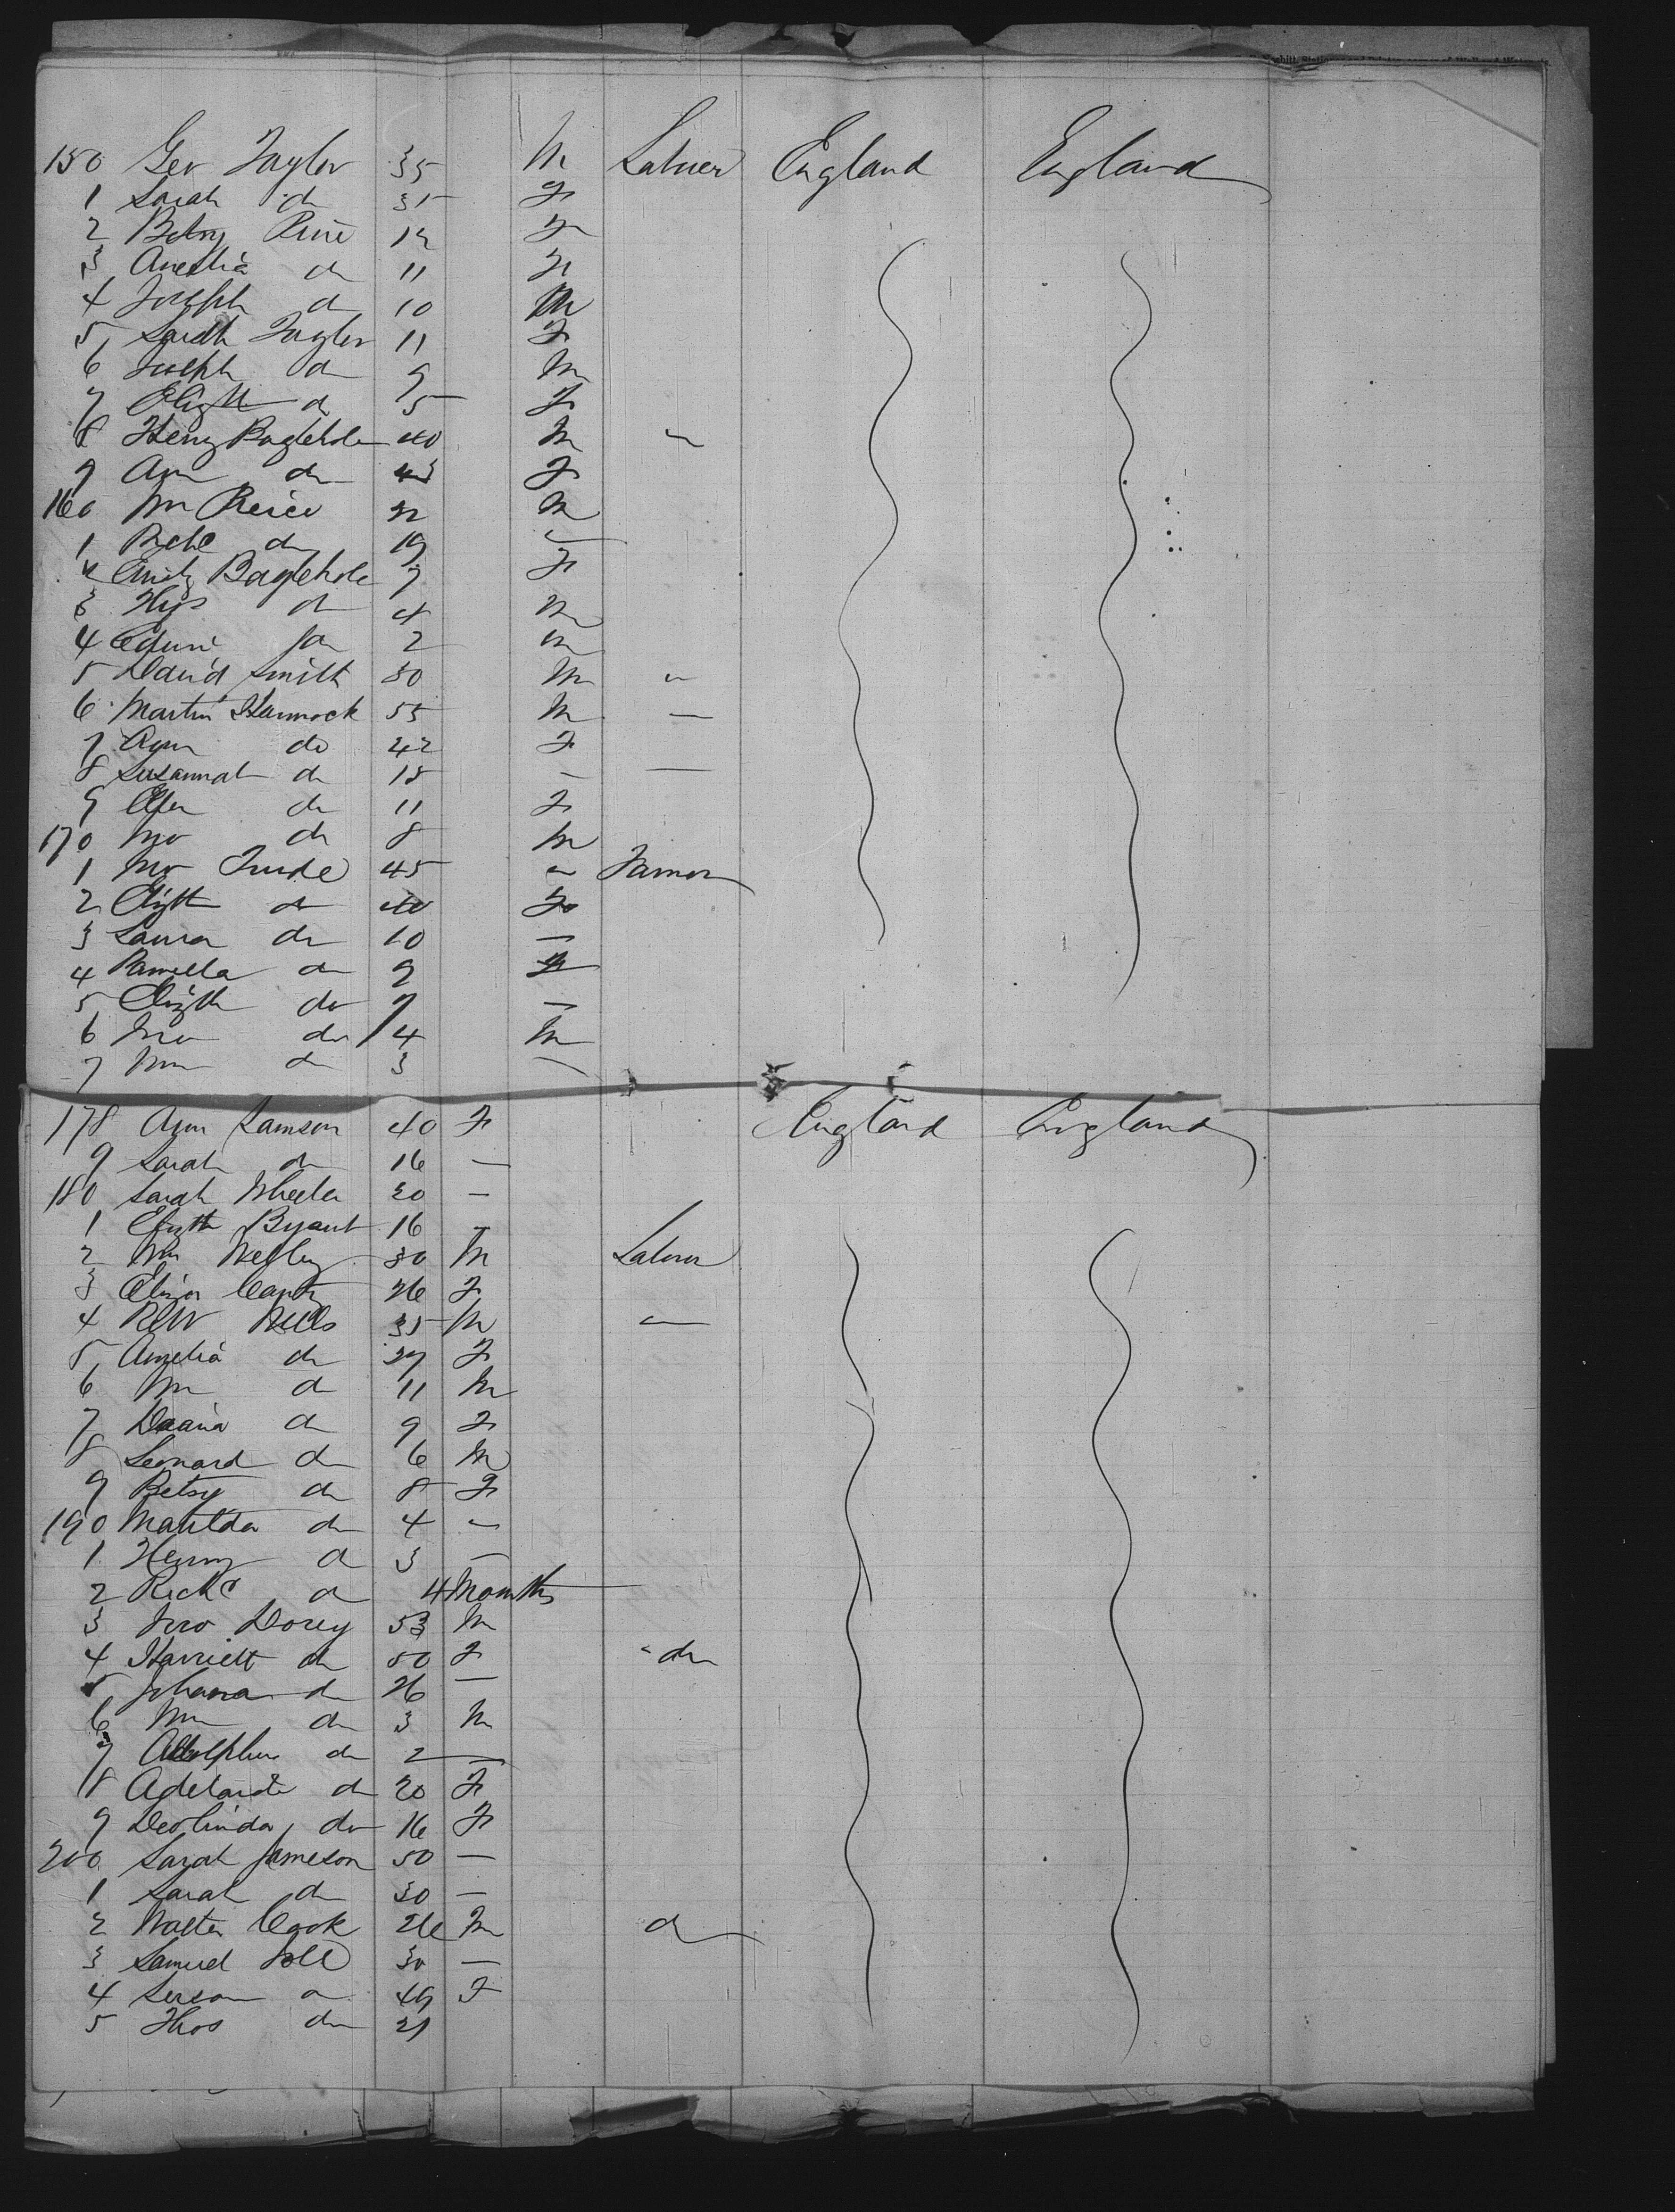 150 Geo Taylor 35 M Labuer England England
1 Sarah do 35 F
2 Betsy 12 F
3 do 11 F
4 Joseph do 10 M
5 Sarah Taylor 11 F
6 Joseph do 9 M
7 Elizth do 5 F
8 Henry Baglehole 40 M "
9 Ann do 43 F
160 Wm 22 M
1 Richd do 19 —
2 Emily Baglehole 7 F
3 do 4 M
4 Edwin do 2 m
5 David Smith 30 M "
6 Martin Hannock 55 M —
7 Ann do 42 F
8 Susannah do 18 — —
9 do 11 F
170 Jno do 8 M
1 Jno 45 " Farmer
2 Elizth do 40 F
3 Laura do 10 —
4 Pamella do 9 F
5 Elizth do 7 —
6 Jno do 4 M
7 Wm do 3 —
178 Ann Samson 40 F England England
9 Sarah do 16 —
180 Sarah Wheeler 20 —
1 Elizth Bryant 16 —
2 Wm 30 M Labour
3 Eliza 26 F
4 35 M —
5 Amelia do 37 F
6 Wm do 11 M
7 do 9 F
8 Leonard do 6 M
9 Betsy do 8 F
190 Matilda do 4 "
1 Henry do 3 —
2 Richd do 4 Months
3 Jno Dorey 53 M
4 Harriett do 50 F " do
5 Johana do 26 —
6 Wm do 3 M
7 Adolphus do 2 —
8 Adelaide do 20 F
9 Deolinda do 16 F
200 Sarah Jameson 50 —
1 Sarah do 30 —
2 Walter Cook 26 M do
3 Samuel 30 —
4 Susan do 49 F
5 Thos do 21